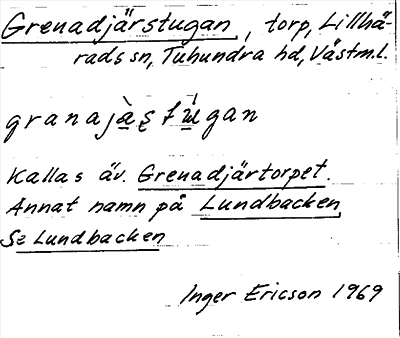 Grenadjärstugan, torp, Lillhä-
rads sn, Tuhundra hd, Västm.l.
granajàs̨tú̵gan
Kallas äv. Grenadjärtorpet.
Annat namn på Lundbacken
Se Lundbacken
Inger Ericson 1969